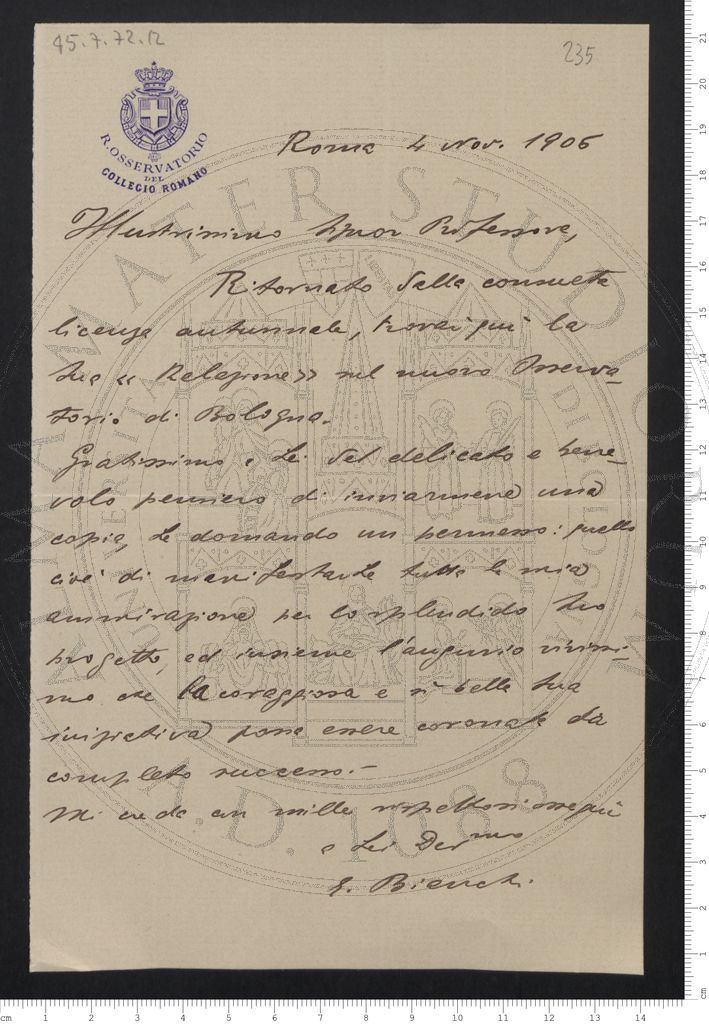 45.7.72.12
235
R. OSSERVATORIO
DEL
COLLEGIO ROMANO
Roma 4 Nov. 1906
Illustrissimo Signor Professore,
Ritornato dalla consueta
licenza autunnale, trovai qui la
Sua « Relazione » sul nuovo Osserva-
torio di Bologna.
Gratissimo a Lei del delicato e bene-
volo pensiero di inviarmene una
copia, Le domando un permesso: quello
cioè di manifestarLe tutta la mia
ammirazione per lo splendido Suo
progetto, ed insieme l'augurio vivissi-
mo che la coraggiosa e sì bella Sua
iniziativa possa essere coronata da
completo successo.-
Mi creda con mille rispettosi ossequi
a Lei Dev mo
E. Bianchi.
ALMA MATER STUDIORUM
A.D. 1088